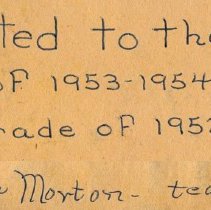 ted to the
of 1953-1954
rade of 195
Morton - tea